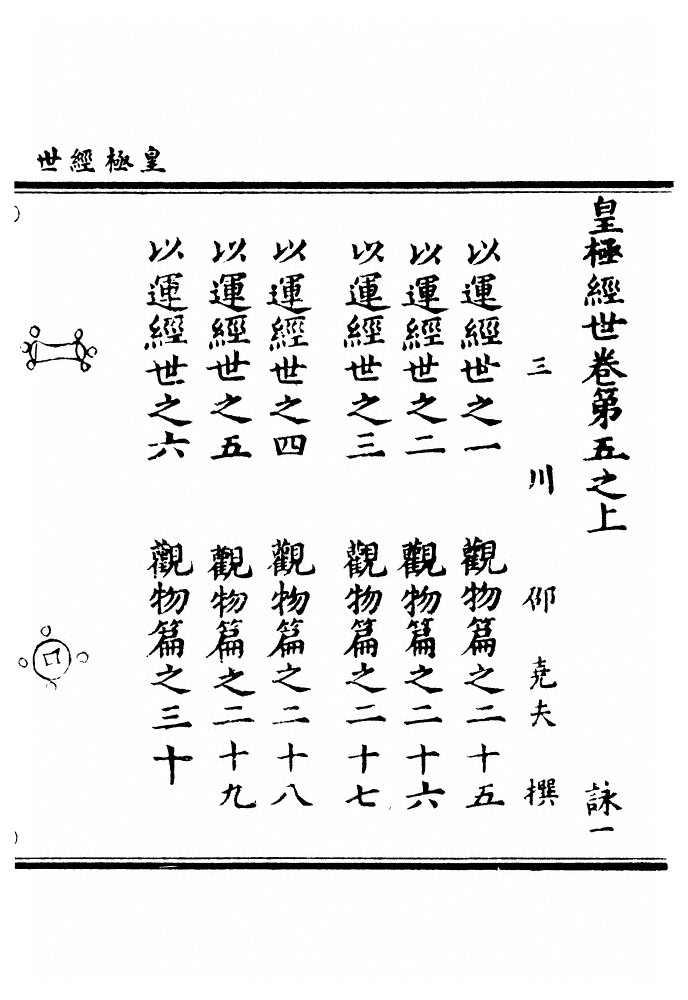 皇極經世
皇極經世卷第五之上 詠一
三川 邵堯夫 撰
以運經世之一 觀物篇之二十五
以運經世之二 觀物篇之二十六
以運經世之三 觀物篇之二十七
以運經世之四 觀物篇之二十八
以運經世之五 觀物篇之二十九
以運經世之六 觀物篇之三十